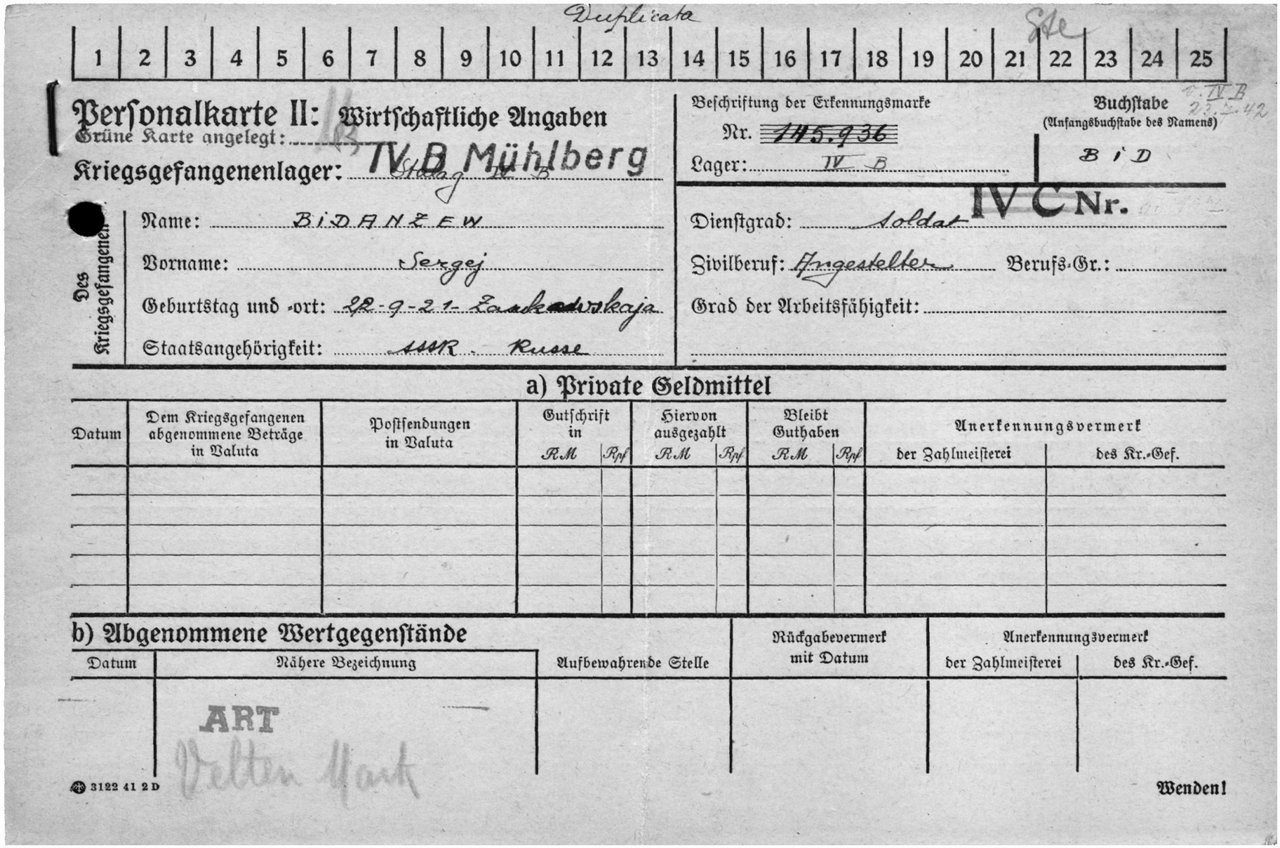 Duplicata
1 2 3 4 5 6 7 8 9 10 11 12 13 14 15 16 17 18 19 20 21 22 23 24 25
Personalkarte II: Wirtschaftliche Angaben
Grüne Karte angelegt:
Kriegsgefangenenlager: Stalag IV B
IV B Mühlberg
Beschriftung der Erkennungsmarke
Nr. 145.936
Lager: IV B
Buchstabe
(Anfangsbuchstabe des Namens)
BiD
IV B
42
Des Kriegsgefangenen
Name: BiDANZEW
Vorname: Sergej
Geburtstag und -ort: 22-9-21-
Staatsangehörigkeit: SSSR. Russe
IV C Nr.
Dienstgrad: soldat
Zivilberuf: Angestelter Berufs-Gr.:
Grad der Arbeitsfähigkeit:
a) Private Geldmittel
Datum
Dem Kriegsgefangenen
abgenommene Beträge
in Valuta
Postsendungen
in Valuta
Gutschrift
in
RM Rpf
Hiervon
ausgezahlt
RM Rpf
Bleibt
Guthaben
RM Rpf
Anerkennungsvermerk
der Zahlmeisterei des Kr.-Gef.
b) Abgenommene Wertgegenstände
Datum Nähere Bezeichnung Aufbewahrende Stelle
Rückgabevermerk
mit Datum
Anerkennungsvermerk
der Zahlmeisterei des Kr.-Gef.
ART
Velten Mark
3122 41 2 D
Wenden!